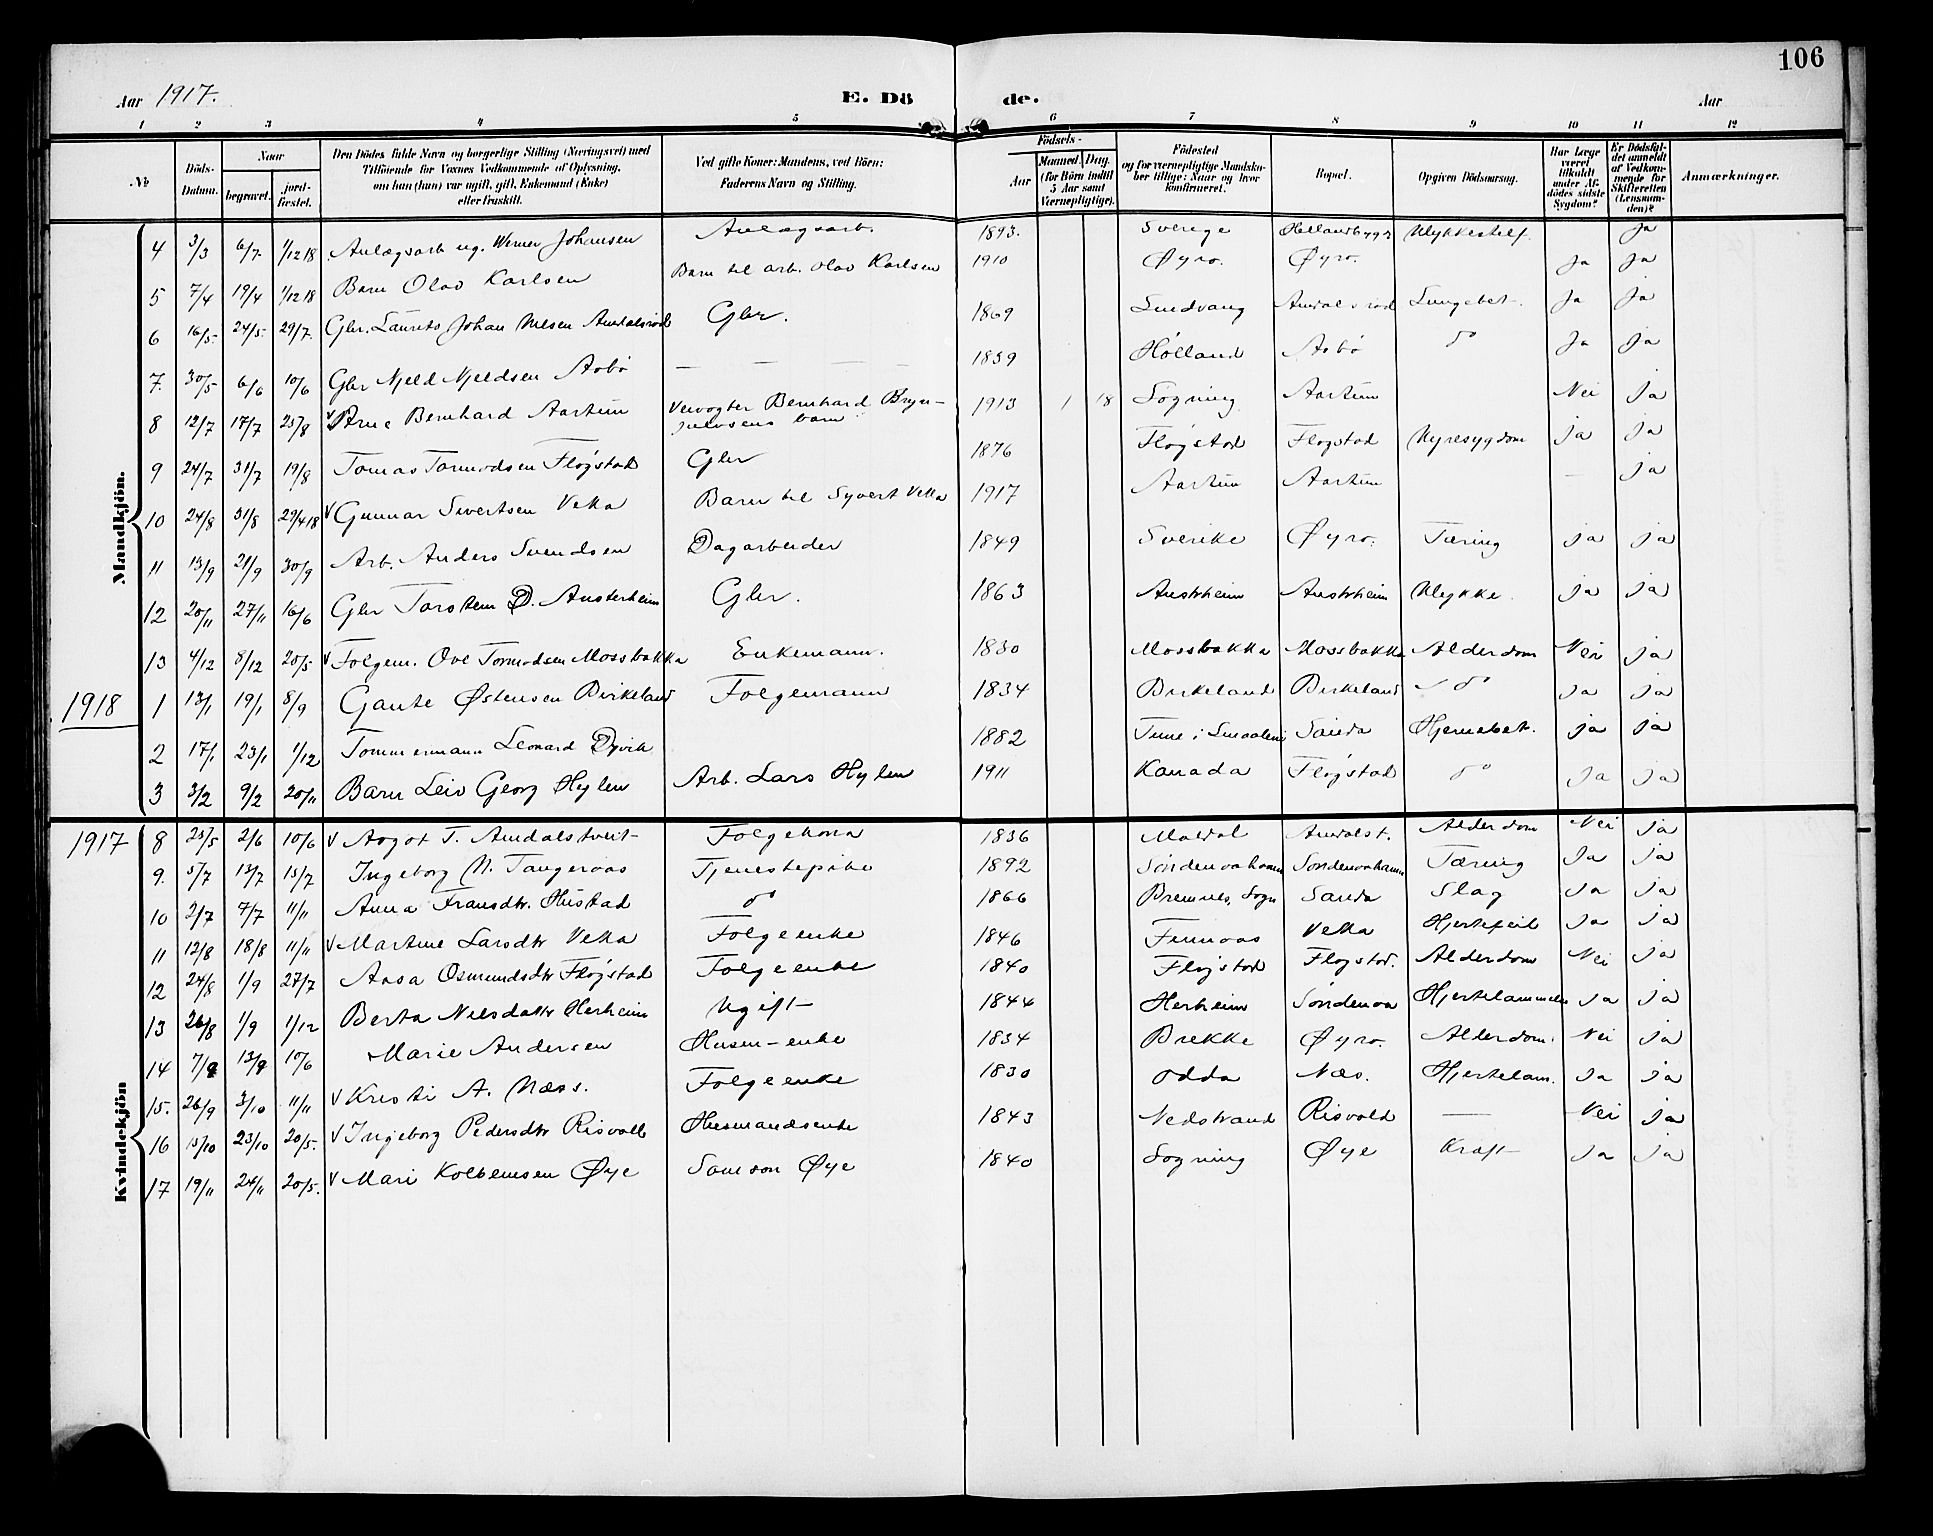 106
Aar 1917. E. Dö de. Aar
1 2 3 4 5 6 7 8 9 10 11 12
№ Döds-Datum. Naar begravet. jord-fæstet. Den Dödes fulde Navn og borgerlige Stilling (Næringsvei) med Tilföiende for Voxnes Vedkommende af Oplysning, om han (hun) var ugift, gift, Enkemand (Enke) eller fraskilt. Ved gifte Koner: Mandens, ved Börn: Faderens Navn og Stilling. Födsels- Aar Maaned. Dag. (for Börn indtil 5 Aar samt Værnepligtige). Födested og for værnepligtige Mandskaber tillige: Naar og hvor konfirmeret. Bopæl. Opgiven Dödsaarsag. Har Læge været tilkaldt under Afdödes sidste Sygdom? Er Dödsfaldet anmeldt af Vedkommende for Skifteretten (Lensmanden)? Anmærkninger.
Mandkjön.
4 3/3 6/7 1/12 18 Anlægsarb. ug. Werner Johansen Anlægsarb. 1893. Sverige Ulykkestilf. Ja
5 7/4 19/4 1/12 18 Barn Olav Karlsen Barn til arb. Olav Karlsen 1910 Øyro. Øyro. Ja Ja
6 16/5 24/5 29/7 Gbr. Laurits Johan Nilsen Amdalsrød Gbr. 1869 Lindvang Amdalsrød Lungebet. Ja Ja
7. 30/5 6/6 10/6 Gbr Kjeld Kjeldsen Aabø — — — 1859 Hølland Aabø do Ja Ja
8 12/7 17/7 25/8 v Arne Bernhard Aartun Veivogter Bernhard Bryn-julvsens barn 1913 1 18 Sogning Aartun Nei Ja
9 24/7 31/7 19/8 Tomas Tormodsen Fløgstad Gbr 1876 Fløgstad Fløgstad Nyresygdom Ja Ja
10 24/8 31/8 29/4 18 v Gunnar Sivertsen Vekka Barn til Syvert Vekka 1917 Aartun Aartun — Ja
11 13/9 21/9 30/9 Arb. Anders Svendsen Dagarbeider 1849 Sverike Øyro. Tæring Ja Ja
12 20/11 27/11 16/6 Gbr Torstein D. Austerheim Gbr. 1863 Austrheim Austrheim Ulykke. Ja Ja
13 4/12 8/12 20/5 v Folgem. Ove Tormodsen Mossbakka Enkemann. 1830 Mossbakka Mossbakka Alderdom Nei Ja
1918 1 13/1 19/1 8/9 Gaute Østensen Birkeland Folgemann 1834 Birkeland Birkeland do Ja Ja
2 17/1 23/1 1/12 Tømmermann Leonard Dyvik 1882 Tune i Smaalene Sauda Hjernebet. Ja Ja
3 3/2 9/2 20/11 Barn Leiv Georg Hylen Arb. Lars Hylen 1911 Kanada Fløgstad do Ja Ja
Kvindekjön
1917 8 25/5 2/6 10/6 v Aagot T. Amdalstveit Folgekona 1836 Maldal Amdalst. Alderdom Nei Ja
9. 5/7 13/7 15/7 Ingeborg N. Tangeraas Tjenestepike 1892 Søndenaahamn Søndenaahamn Tæring Ja Ja
10 2/7 7/7 11/11 Anna Fransdtr. Hustad do 1866 Bremnes, Sogn Sauda Slag Ja Ja
11 12/8 18/8 11/11 v Martine Larsdtr Vekka Folgeenke 1846 Finnaas Vekka Hjertefeil Ja Ja
12 24/8 1/9 27/7 Aasa Osmundsdtr Fløgstad Folgeenke 1840 Fløgstad Fløgstad. Alderdom Nei Ja
13 26/8 1/9 1/12 Berta Nilsdattr Herheim Ugift 1844 Herheim Søndenaa Hjertelammelse Ja Ja
14 7/9 13/9 10/6 Marie Andersen Husm-enke 1834 Brekke Øyro. Alderdom. Nei Ja
15. 26/9 3/10 11/11 v Kristi A. Næss. Folgeenke 1830 Odda Næs. Hjertelam. Ja Ja
16 15/10 23/10 20/5. v Ingeborg Pedersdtr Risvold Husmandsenke 1843 Nedstrand Risvold — Nei Ja
17 19/11 24/11 20/5. v Mari Kolbeinsen Øye Samson Øye 1840 Sogning Øye Kræft Ja Ja